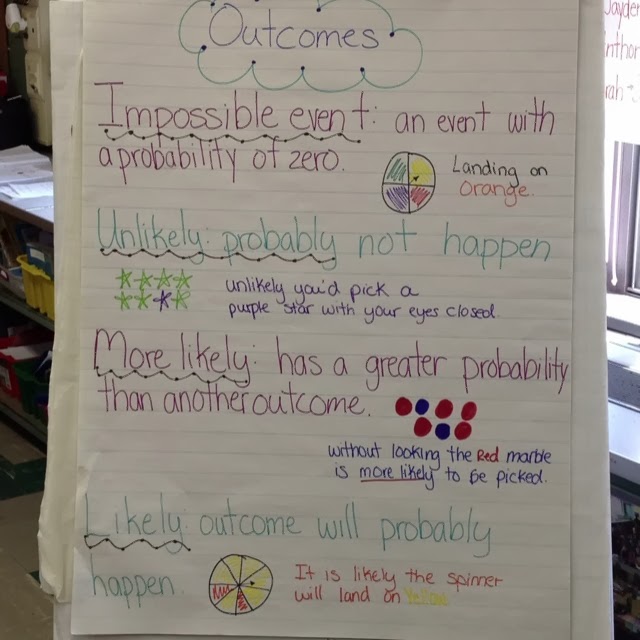 Outcomes
Impossible event: an event with
a probability of zero.
Landing on
Orange.
Unlikely: probably not happen
unlikely you'd pick a
purple star with your eyes closed.
More likely: has a greater probability
than another outcome.
without looking the Red marble
is more likely to be picked.
Likely: outcome will probably
happen.
It is likely the spinner
will land on Yellow
Jayden